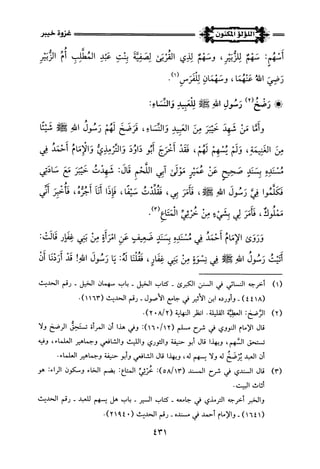 اللؤلؤ المكنون
غزوة خيبر
أَسْهُمٍ: سَهْمٌ لِلزُّبَيْرِ، وسَهْمٌ لِذِي القُرْبَى لِصَفِيَّةَ بِنْتِ عَبْدِ المُطَّلِبِ أُمِّ الزُّبَيْرِ
رَضِيَ اللهُ عَنْهُمَا، وسَهْمَانِ لِلْفَرَسِ (١).
رَضْخُ (٢) رَسُولِ اللهِ ﷺ لِلْعَبِيدِ والنِّسَاءِ:
وأَمَّا مَنْ شَهِدَ خَيْبَرَ مِنَ العَبِيدِ والنِّسَاءِ، فَرَضَخَ لَهُمْ رَسُولُ اللهِ ﷺ شَيْئًا
مِنَ الغَنِيمَةِ، ولَمْ يُسْهِمْ لَهُمْ، فَقَدْ أَخْرَجَ أَبُو دَاوُدَ والتِّرْمِذِيُّ والْإِمَامُ أَحْمَدُ فِي
مُسْنَدِهِ بِسَنَدٍ صَحِيحٍ عَنْ عُمَيْرٍ مَوْلَى آبِي اللَّحْمِ قَالَ: شَهِدْتُ خَيْبَرَ مَعَ سَادَتِي
فَكَلَّمُوا فِيَّ رَسُولَ اللهِ ﷺ، فَأَمَرَ بِي، فَقُلِّدْتُ سَيْفًا، فَإِذَا أَنَا أَجُرُّهُ، فَأُخْبِرَ أَنِّي
مَمْلُوكٌ، فَأَمَرَ لِي بِشَيْءٍ مِنْ خُرْثِيِّ المَتَاعِ (٣).
وَرَوَى الإِمَامُ أَحْمَدُ فِي مُسْنَدِهِ بِسَنَدٍ ضَعِيفٍ عَنِ امْرَأَةٍ مِنْ بَنِي غِفَارٍ قَالَتْ:
أَتَيْتُ رَسُولَ اللهِ ﷺ فِي نِسْوَةٍ مِنْ بَنِي غِفَارٍ، فَقُلْنَا لَهُ: يَا رَسُولَ اللهِ! قَدْ أَرَدْنَا أَنْ
(١) أخرجه النسائي في السنن الكبرى - كتاب الخيل - باب سهمان الخيل - رقم الحديث
(٤٤١٨) - وأورده ابن الأثير في جامع الأصول - رقم الحديث (١١٦٣).
(٢) الرَّضخ: العطِيَّة القليلة. انظر النهاية (٢٠٨/٢).
قال الإمام النووي في شرح مسلم (١٦٠/١٢): وفي هذا أن المرأة تستحِقُّ الرضخ ولا
تستحق السَّهم، وبهذا قال أبو حنيفة والثوري والليث والشافعي وجماهير العلماء، وفيه
أن العبد يُرْضَخُ له ولا يسهم له، وبهذا قال الشافعي وأبو حنيفة وجماهير العلماء.
(٣) قال السندي في شرح المسند (٥٨/١٣): خُرْثِيّ المتاع: بضم الخاء وسكون الراء: هو
أثاث البيت.
والخبر أخرجه الترمذي في جامعه - كتاب السير - باب هل يسهم للعبد - رقم الحديث
(١٦٤١) - والإمام أحمد في مسنده - رقم الحديث (٢١٩٤٠).
٤٣١